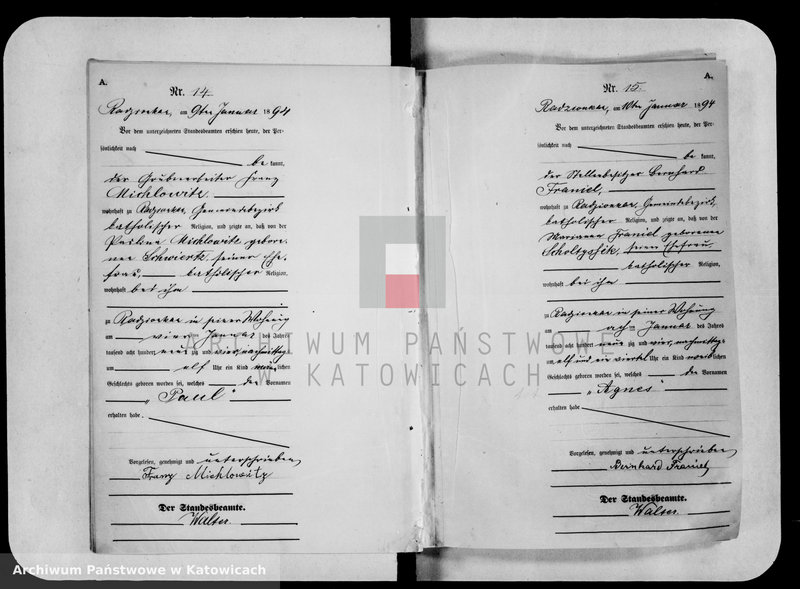 A.
Nr. 14
Radzionkau, am 9ten Januar 1894
Vor dem unterzeichneten Standesbeamten erschien heute, der Per-
sönlichkeit nach
be kannt,
der Grubenarbeiter Franz
Michlowitz
wohnhaft zu Radzionkau, Gemeindebezirk
katholischer Religion, und zeigte an, daß von der
Pauline Michlowitz gebore-
nen Schwiertz, seiner Ehe-
frau, katholischer Religion,
wohnhaft bei ihm
zu Radzionkau in seiner Wohnung
am vierten Januar des Jahres
tausend acht hundert neunzig und vier, nachmittags
um elf Uhr ein Kind männlichen
Geschlechts geboren worden sei, welches den Vornamen
„Paul"
erhalten habe.
Vorgelesen, genehmigt und unterschrieben
Franz Michlowitz
Der Standesbeamte.
Walter
A.
Nr. 15
Radzionkau, am 10ten Januar 1894
Vor dem unterzeichneten Standesbeamten erschien heute, der Per-
sönlichkeit nach
be kannt,
der Stellenbesitzer Bernhard
Franiel,
wohnhaft zu Radzionkau, Gemeindebezirk
katholischer Religion, und zeigte an, daß von der
Marianna Franiel geborenen
seiner Ehefrau
katholischer Religion,
wohnhaft bei ihm
zu Radzionkau in seiner Wohnung
am Januar des Jahres
tausend acht hundert neunzig und vier, nachmittags
um elf und ein viertel Uhr ein Kind weiblichen
Geschlechts geboren worden sei, welches den Vornamen
„Agnes"
erhalten habe
Vorgelesen, genehmigt und unterschrieben
Bernhard Franiel
Der Standesbeamte.
Walter
ARCHIWUM PAŃSTWOWE
W KATOWICACH
Archiwum Państwowe w Katowicach